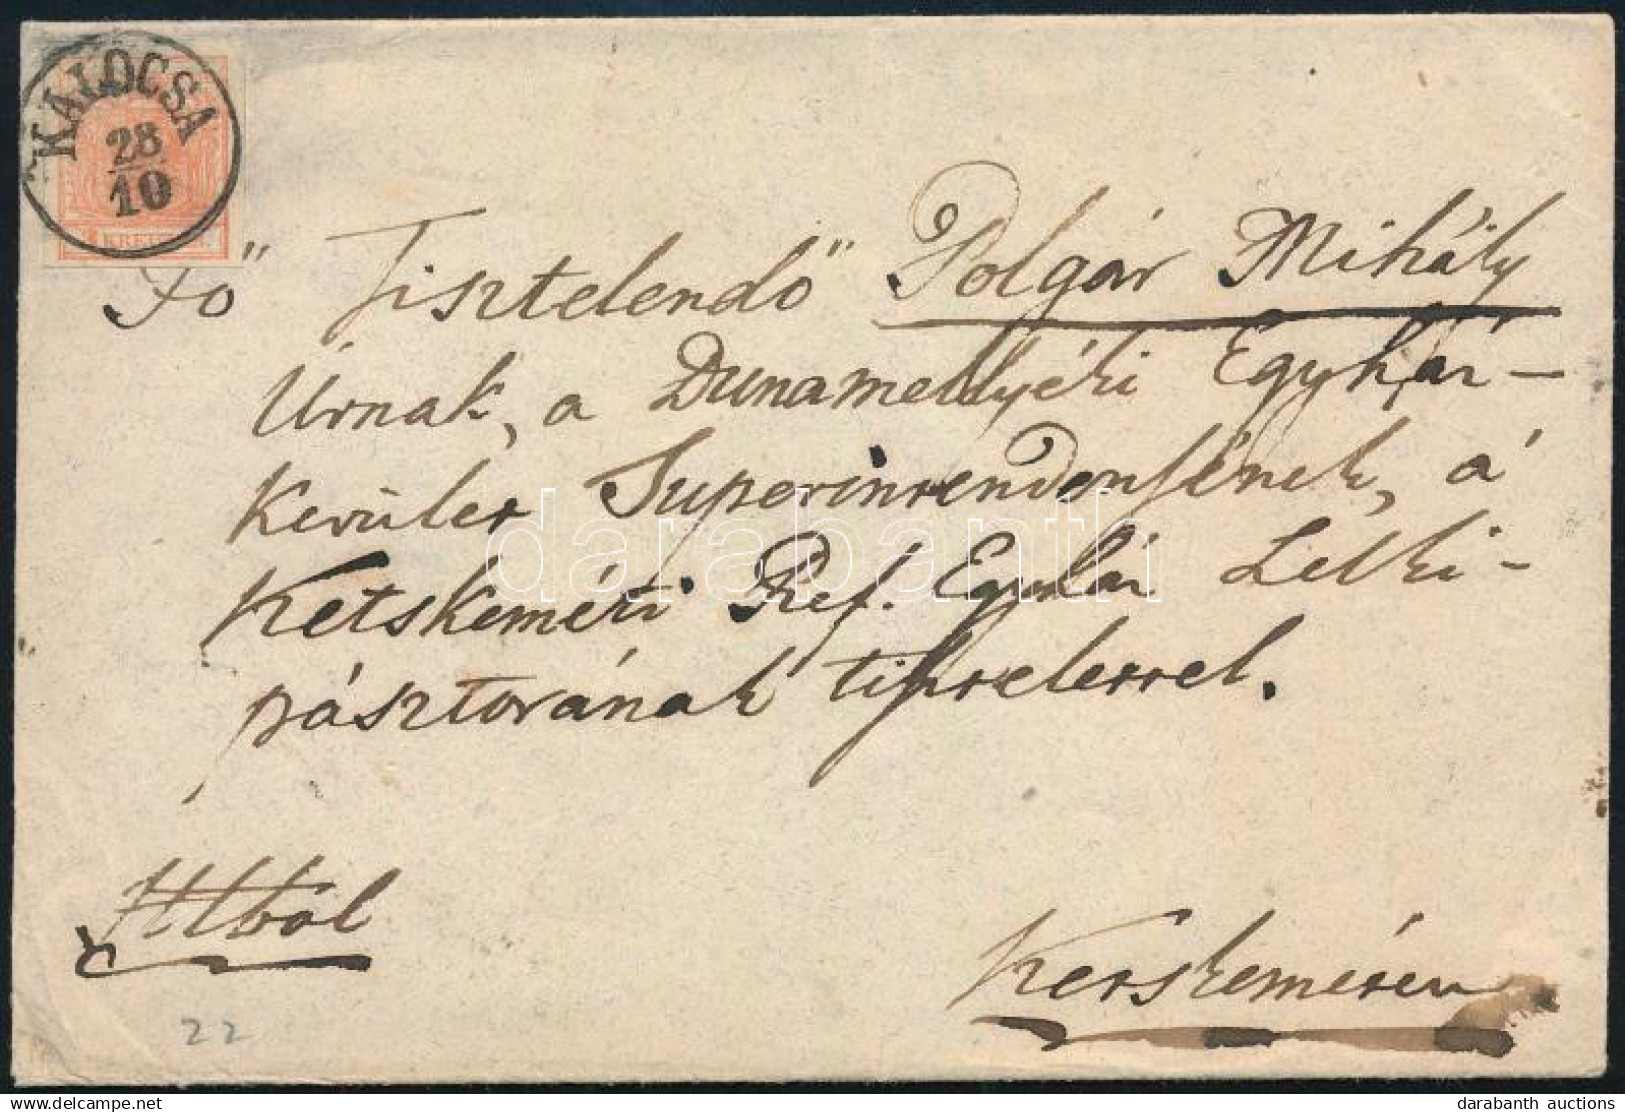 KALOCSA
28
10
KREUZER
Fő" Tisztelendő" Polgár Mihály
Úrnak, a Dunamellyéki Egyház-
Kerület Superintendensének, a'
Ketskeméti Ref. Egyház Lelki-
pásztorának tisztelettel.
Ketskeméten
22
darabanth
www.delcampe.net
darabanth auctions